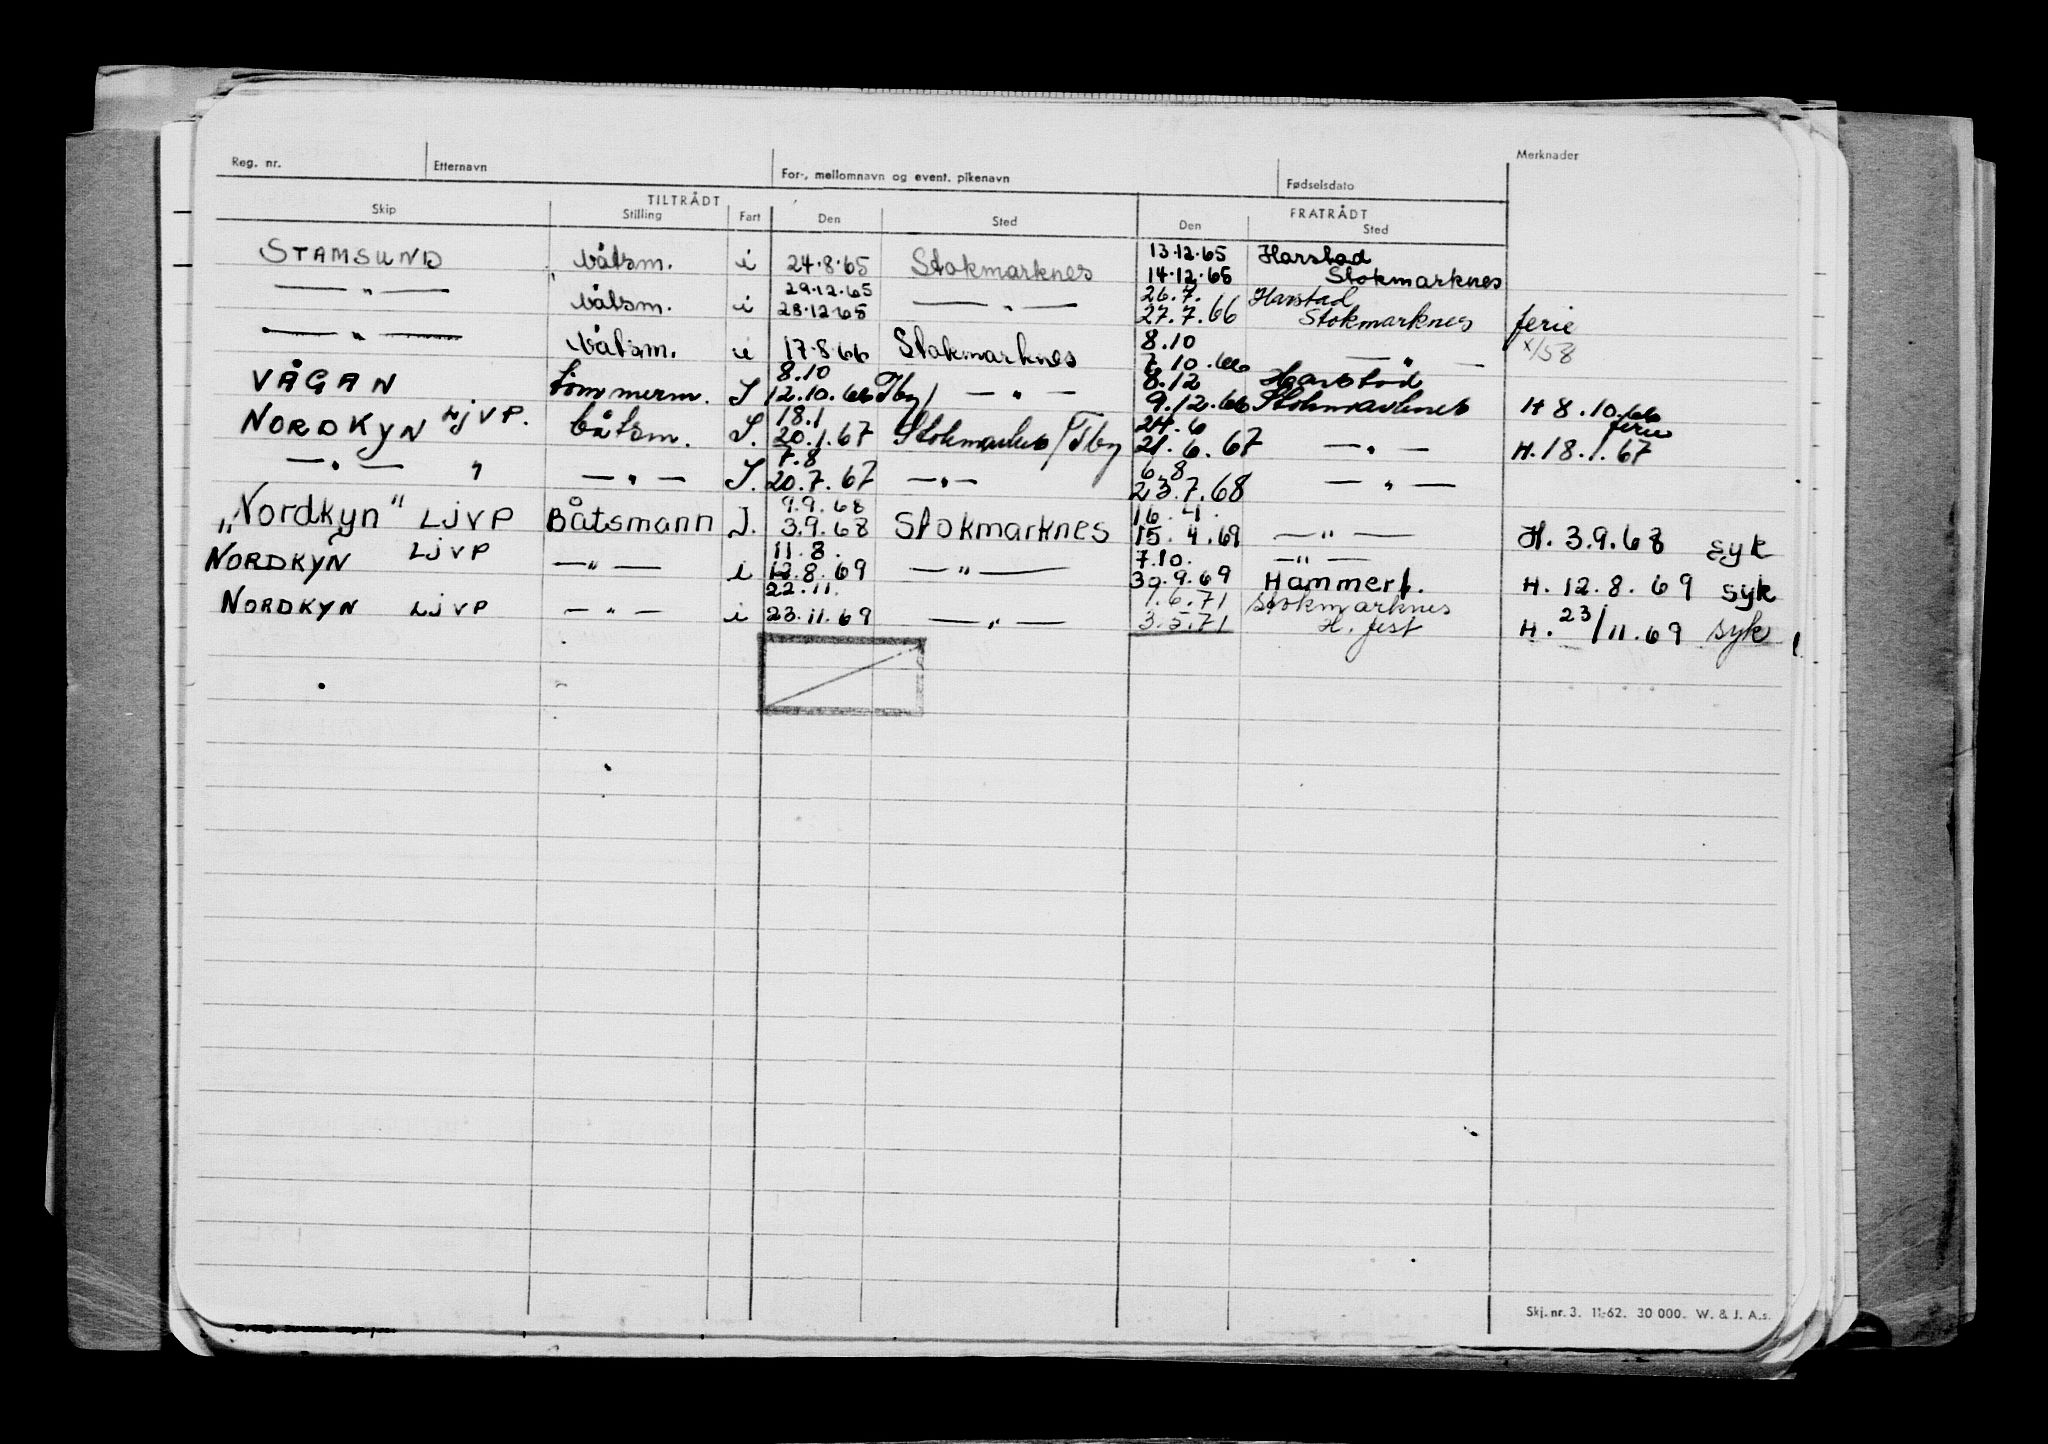 Reg. nr. Etternavn For-, mellomnavn og event. pikenavn Fødselsdato Merknader
TILTRÅDT FRATRÅDT
Skip Stilling Fart Den Sted Den Sted
13.12.65 Harstad
STAMSUND båtsm. i 24.8.65 Stokmarknes 14.12.65 Stokmarknes
29.12.65 26.7. Harstad
— " — båtsm. i 28.12.65 — " — 27.7.66 Stokmarknes ferie
8.10 x/58
— " — båtsm. i 17.8.66 Stokmarknes 7.10.66 — " —
8.10 8.12 Harstad
VÅGAN tømmerm. I 12.10.66 Tby) — " — 9.12.66 Stokmarknes H 8.10.66
18.1 24.6 ferie
NORDKYN LJVP. båtsm. I. 20.1.67 /Tby 21.6.67 — " — H. 18.1.67
7.8 6.8
— " — " — " — I. 20.7.67 — " — 23.7.68 — " —
9.9.68 16.4.
„Nordkyn" LJVP Båtsmann I. 3.9.68 Stokmarknes 15.4.69 — " — H. 3.9.68 syk
11.8. 7.10. — " —
NORDKYN LJVP — " — i 12.8.69 — " — 30.9.69 Hammerf. H. 12.8.69 syk
22.11. 7.6.71 Stokmarknes
NORDKYN LJVP — " — i 23.11.69 — " — 3.5.71 H. fest H. 23/11.69 syk
Skj. nr. 3. 11-62. 30 000. W. & J. A.s.